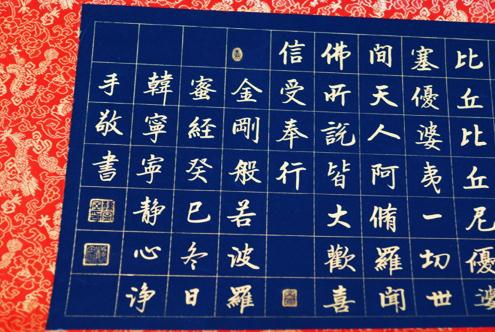 比丘比丘尼優婆
塞優婆夷一切世
間天人阿脩羅聞
佛所說皆大歡喜
信受奉行
金剛般若波羅
蜜經癸巳冬日
韓寧寕静心淨
手敬書